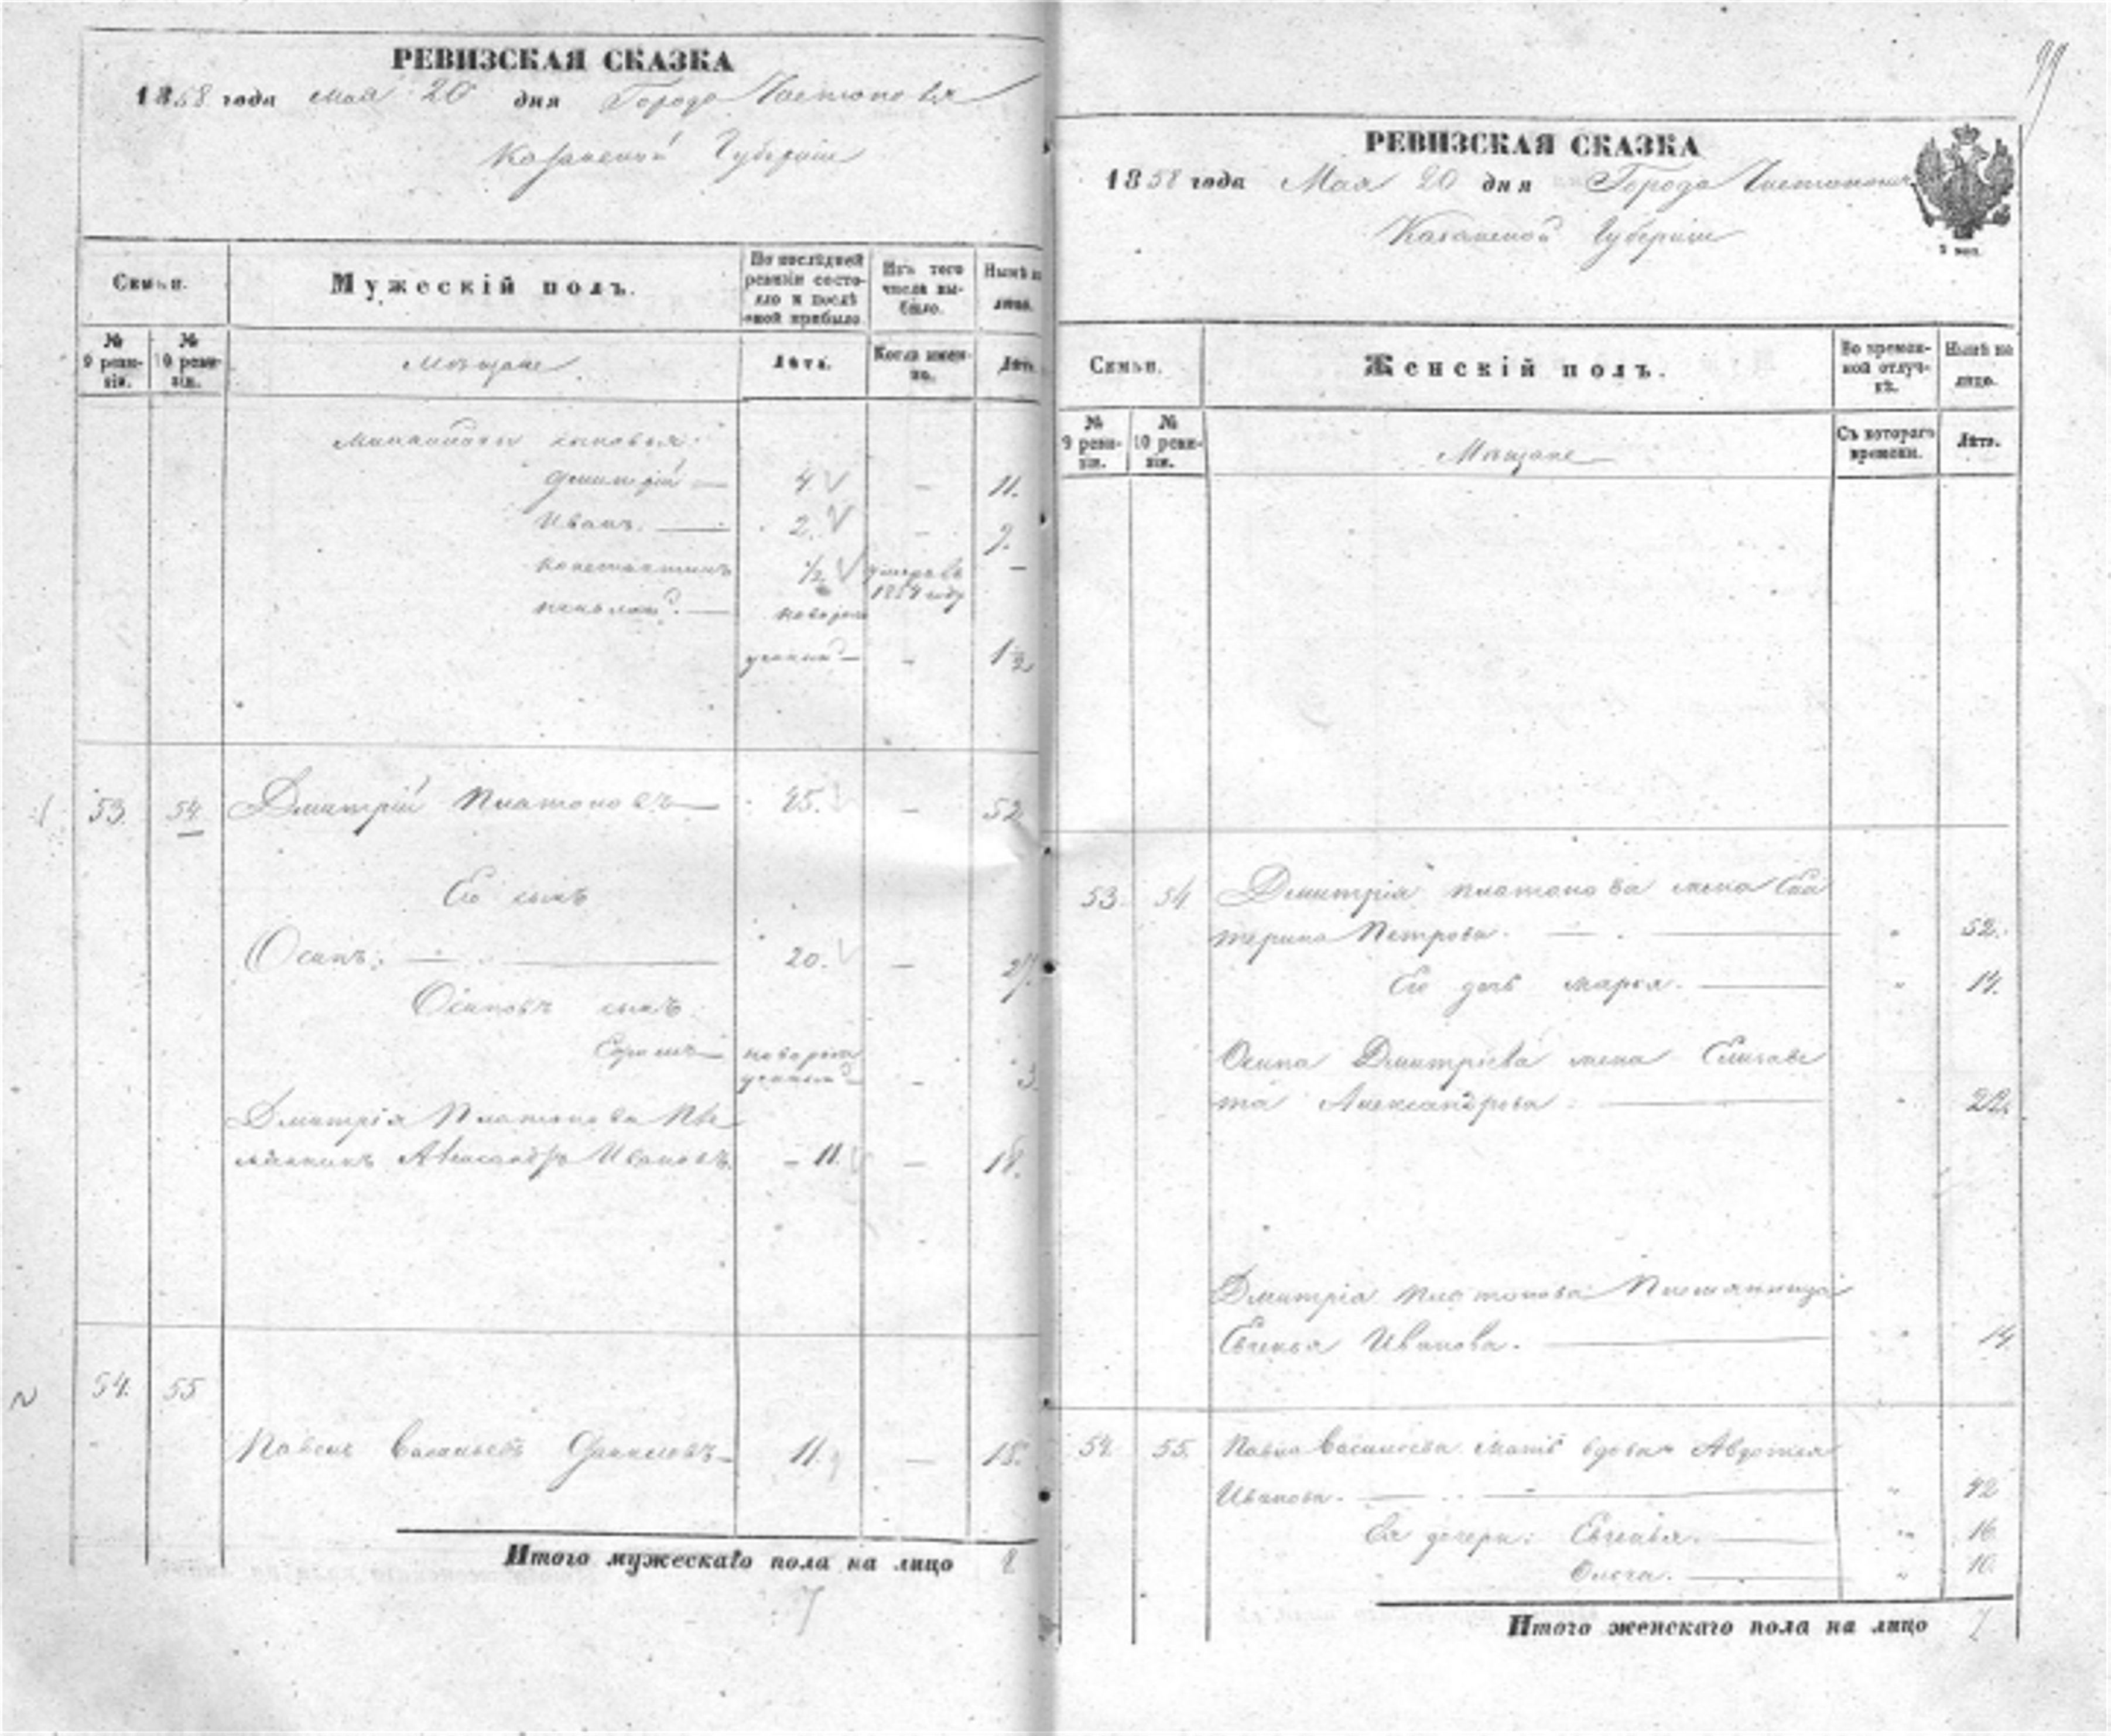 РЕВИЗСКАЯ СКАЗКА
1858 года мая 20 дня Города Чистополя
Казанской Губернии
Семьи.
Мужескій полъ.
По послѣдней ревизіи состояло и послѣ оной прибыло
Изъ того числа выбыло.
Нынѣ на лицо.
№ 9 ревизіи.
№ 10 ревизіи.
Мѣщане
Лѣта.
Когда именно.
Лѣта.
сыновья:
Дмитрій — 4. — 11.
Иванъ. — 2. — 9.
Константинъ ½ умеръ въ 1854 году —
Николай. — новорож
денный — - 1½
53. 54. Дмитрій Платоновъ — 45. — 52
Его сынъ
Осипъ: — 20. — 27.
Осиповъ сынъ:
новорож
денный — - 3.
Дмитрія Платонова пле
мянникъ Александръ Ивановъ. — 11. — 18.
54. 55
Павелъ Васильевъ — 11. — 18.
Итого мужескаго пола на лицо 8
7
99
РЕВИЗСКАЯ СКАЗКА
1858 года Мая 20 дня Города Чистополя
Казанской Губерніи
Семьи.
Женскій полъ.
Во временной отлучкѣ.
Нынѣ на лицо.
№ 9 ревизіи.
№ 10 ревизіи.
Мѣщане
Съ котораго времени.
Лѣта.
53. 54. Дмитрія Платонова жена Ека
терина Петрова. — " 52.
Его дочь Марья. — " 14.
Осипа Дмитріева жена Елизаве
та Александрова — " 22.
Дмитрія Платонова Племянница
Евгенья Иванова. — " 14
54. 55. Павла Васильева мать вдова Авдотья
Иванова. — " 42
Ея дочери: Евгенья. — " 16
Ольга. — " 10.
Итого женскаго пола на лицо 7